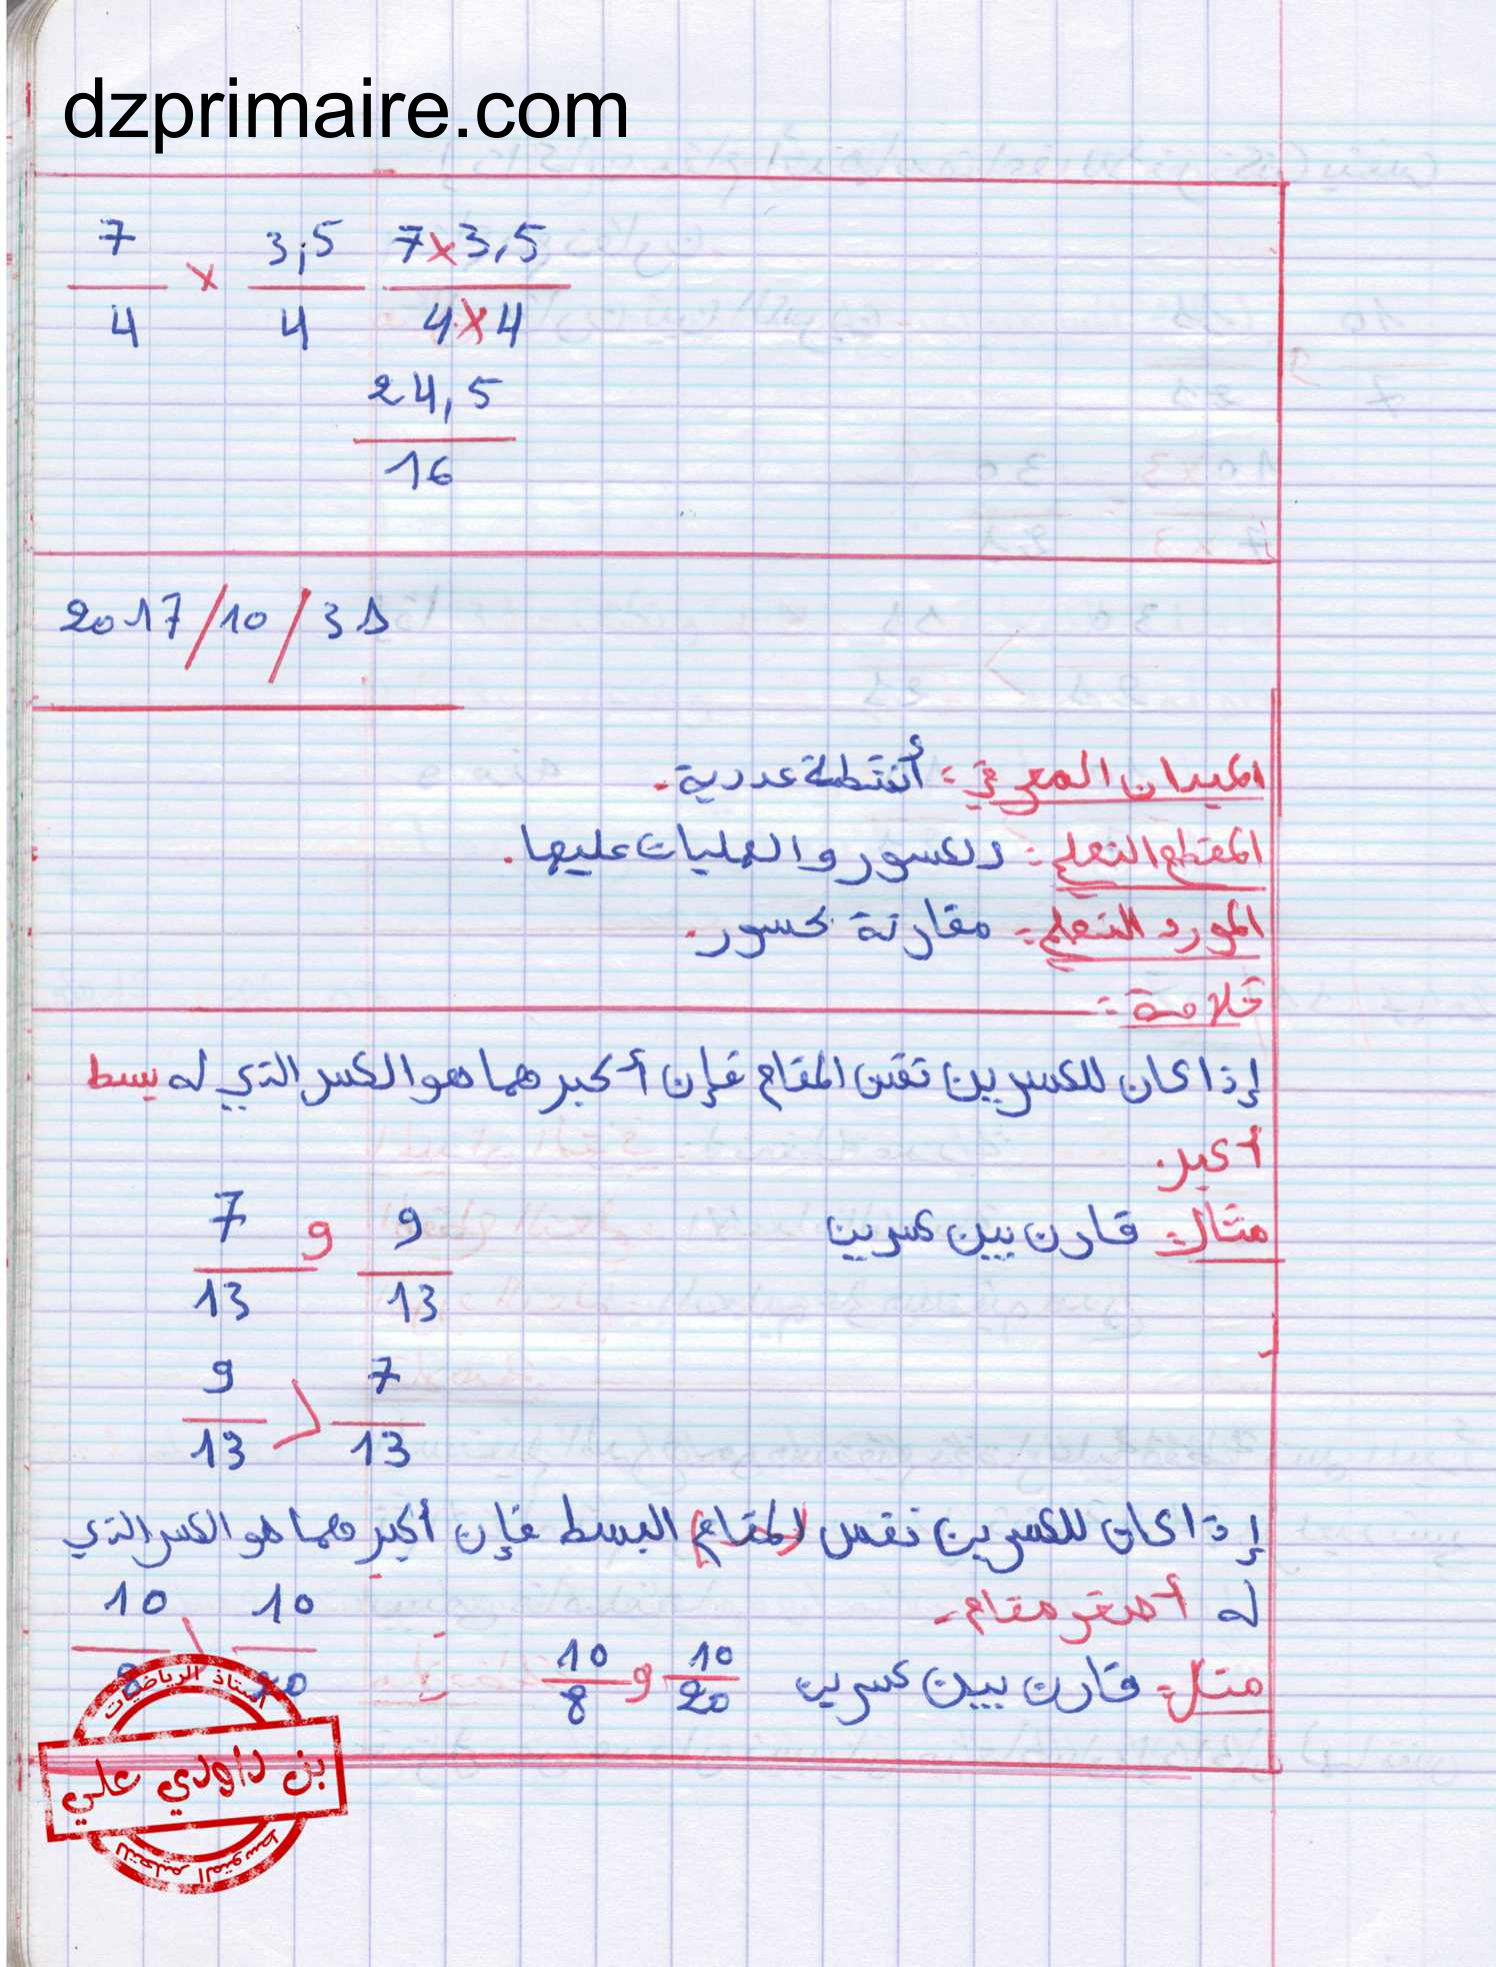 dzprimaire.com
7/4 × 3,5/4 7×3,5/4×4
24,5/16
2017/10/31
الميدان المعرفي: أنشطة عددية.
المقطع التعلمي: الكسور والعمليات عليها.
المورد التعلمي: مقارنة كسور.
خلاصة:
إذا كان للكسرين نفس المقام فإن أكبرهما هو الكسر الذي له بسط
أكبر.
مثال: قارن بين كسرين 7/13 و 9/13
9/13 > 7/13
إذا كان للكسرين نفس (المقام) البسط فإن أكبرهما هو الكسر الذي
له أصغر مقام.
مثال: قارن بين كسرين 10/8 و 10/20
10/8 > 10/20
أستاذ الرياضيات
بن داودي علي
للتعليم المتوسط